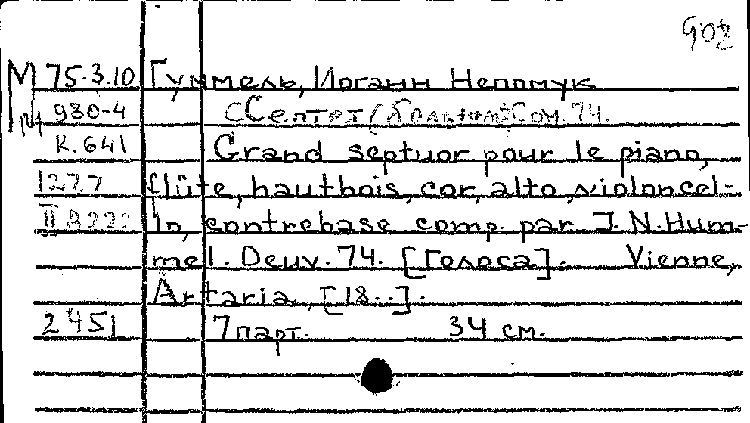 М 75-3.10 Гуммель, Иоганн Непомук
930-4 Септет/большой Соч. 74.
К.641 Grand septuor pour le piano,
1277 flûte, hautbois, cor, alto, violoncel-
II lo, contrebase comp. par J. N. Hum-
mel. Oeuv. 74. [Голоса]. Vienne,
Artaria, [18..].
2451 7 парт. 34 см.